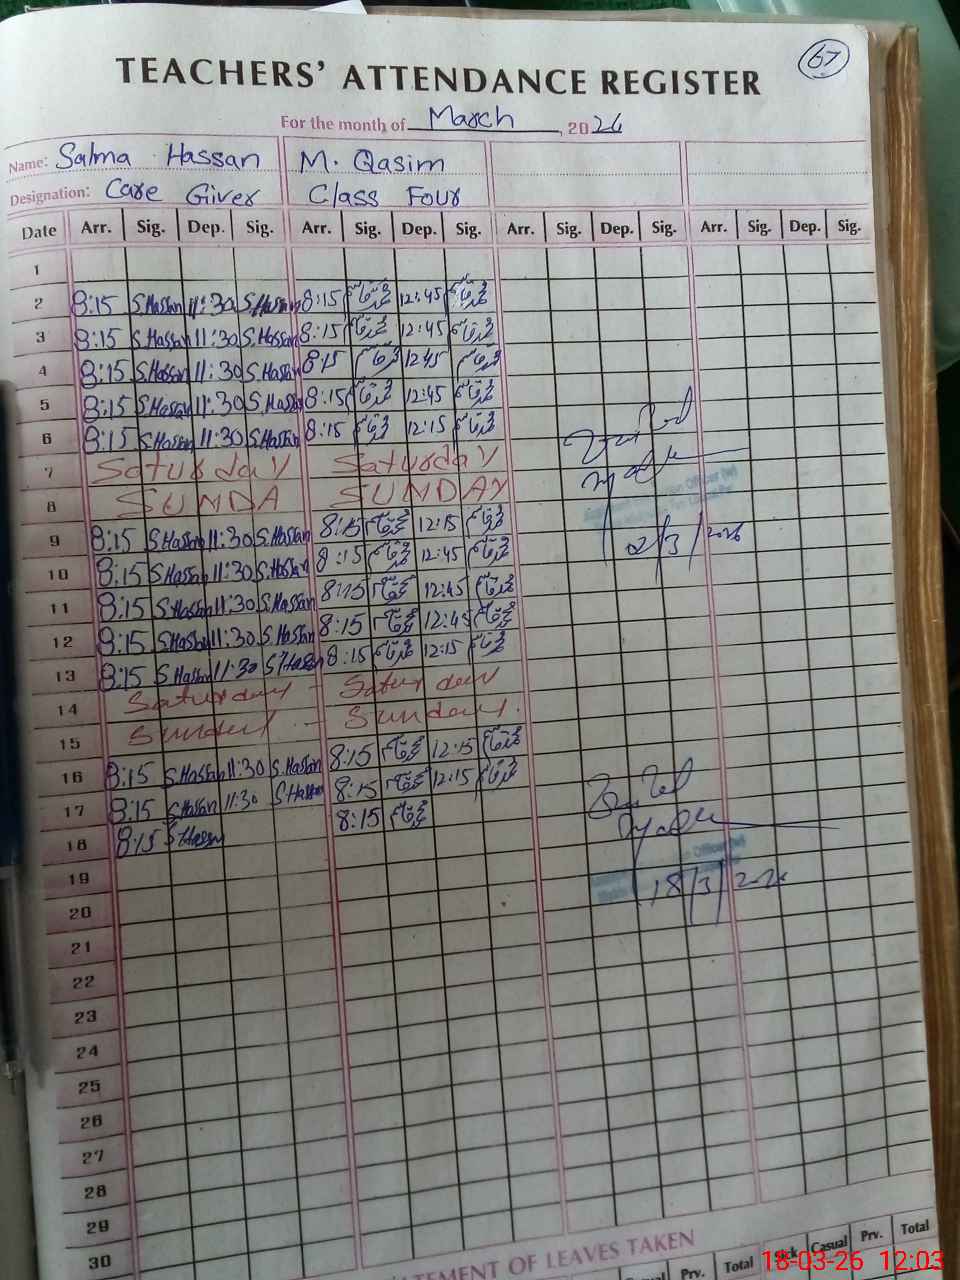 67
TEACHERS' ATTENDANCE REGISTER
For the month of March, 2026
Name: Salma Hassan M. Qasim
Designation: Care Giver Class Four
Date Arr. Sig. Dep. Sig. Arr. Sig. Dep. Sig. Arr. Sig. Dep. Sig. Arr. Sig. Dep. Sig.
1
2 8:15 S.Hassan 11:30 S.Hassan 8:15 12:45
3 8:15 S.Hassan 11:30 S.Hassan 8:15 12:45
4 8:15 S.Hassan 11:30 S.Hassan 8:15 12:45
5 8:15 S.Hassan 11:30 S.Hassan 8:15 12:45
6 8:15 S.Hassan 11:30 S.Hassan 8:15 12:15
7 Saturday Saturday
8 SUNDA SUNDAY
9 8:15 S.Hassan 11:30 S.Hassan 8:15 12:15
2/3/2026
10 8:15 S.Hassan 11:30 S.Hassan 8:15 12:45
11 8:15 S.Hassan 11:30 S.Hassan 8:15 12:45
12 8:15 S.Hassan 11:30 S.Hassan 8:15 12:45
13 8:15 S.Hassan 11:30 S.Hassan 8:15 12:15
14 Saturday - Saturday
15 Sunday - Sunday.
16 8:15 S.Hassan 11:30 S.Hassan 8:15 12:15
17 8:15 S.Hassan 11:30 S.Hassan 8:15 12:15
18 8:15 S.Hassan 8:15
19
18/3/2026
20
21
22
23
24
25
26
27
28
29
30
STATEMENT OF LEAVES TAKEN
Prv. Total Sick Casual Prv. Total
18-03-26 12:03